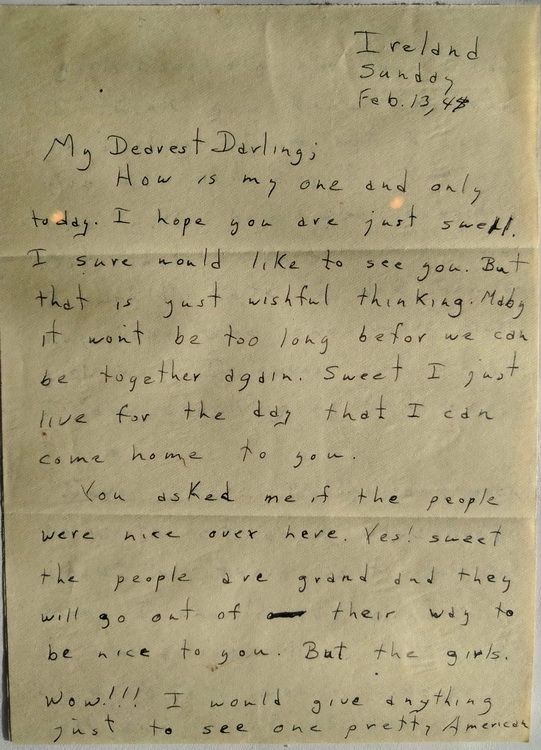 Ireland
Sunday
Feb. 13, 44
My Dearest Darling;
How is my one and only
today. I hope you are just swell.
I sure would like to see you. But
that is just wishful thinking. Maby
it wont be too long befor we can
be together again. Sweet I just
live for the day that I can
come home to you.
You asked me if the people
were nice over here. Yes! sweet
the people are grand and they
will go out of their way to
be nice to you. But the girls.
Wow!!! I would give anything
just to see one pretty American